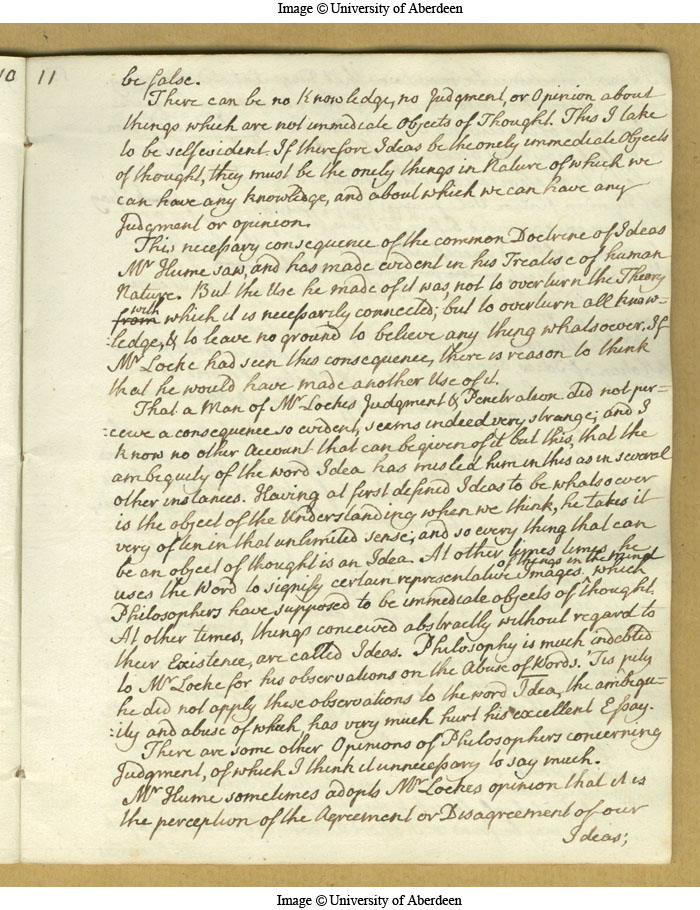 Image © University of Aberdeen
10 11
be false.
There can be no Knowledge, no Judgment, or Opinion about
things which are not immediate Objects of Thought. This I take
to be selfevident. If therefore Ideas be the onely immediate Objects
of thought, they must be the onely things in Nature of which we
can have any knowledge, and about which we can have any
Judgment or opinion.
This necessary consequence of the common Doctrine of Ideas
Mr Hume saw, and has made evident in his Treatise of human
Nature. But the Use he made of it was, not to overturn the Theory
with
from which it is necessarily connected; but to overturn all know-
:ledge, & to leave no ground to believe any thing whatsoever. If
Mr Locke had seen this consequence, there is reason to think
that he would have made another Use of it.
That a Man of Mr Lockes Judgment & Penetration did not per-
:ceive a consequence so evident, seems indeed very strange; and I
know no other Account that can be given of it but this, that the
ambeguity of the word Idea has misled him in this as in several
other instances. Having at first defined Ideas to be whatsoever
is the object of the Understanding when we think, he takes it
very often in that unlimited sense; and so every thing that can
be an object of thought is an Idea. At other times times, he
of things in the mind
uses the Word to signify certain representative Images ‸ which
Philosophers have supposed to be immediate objects of thought.
At other times, things conceived abstractly without regard to
their Existence, are called Ideas. Philosophy is much indebted
to Mr Locke for his observations on the Abuse of Words. 'Tis pity
he did not apply these observations to the word Idea, the ambegu-
:ity and abuse of which, has very much hurt his excellent Essay.
There are some other Opinions of Philosophers concerning
Judgment, of which I think it unnecessary to say much.
Mr Hume sometimes adopts Mr Lockes opinion that it is
the perception of the Agreement or Disagreement of our
Ideas;
Image © University of Aberdeen